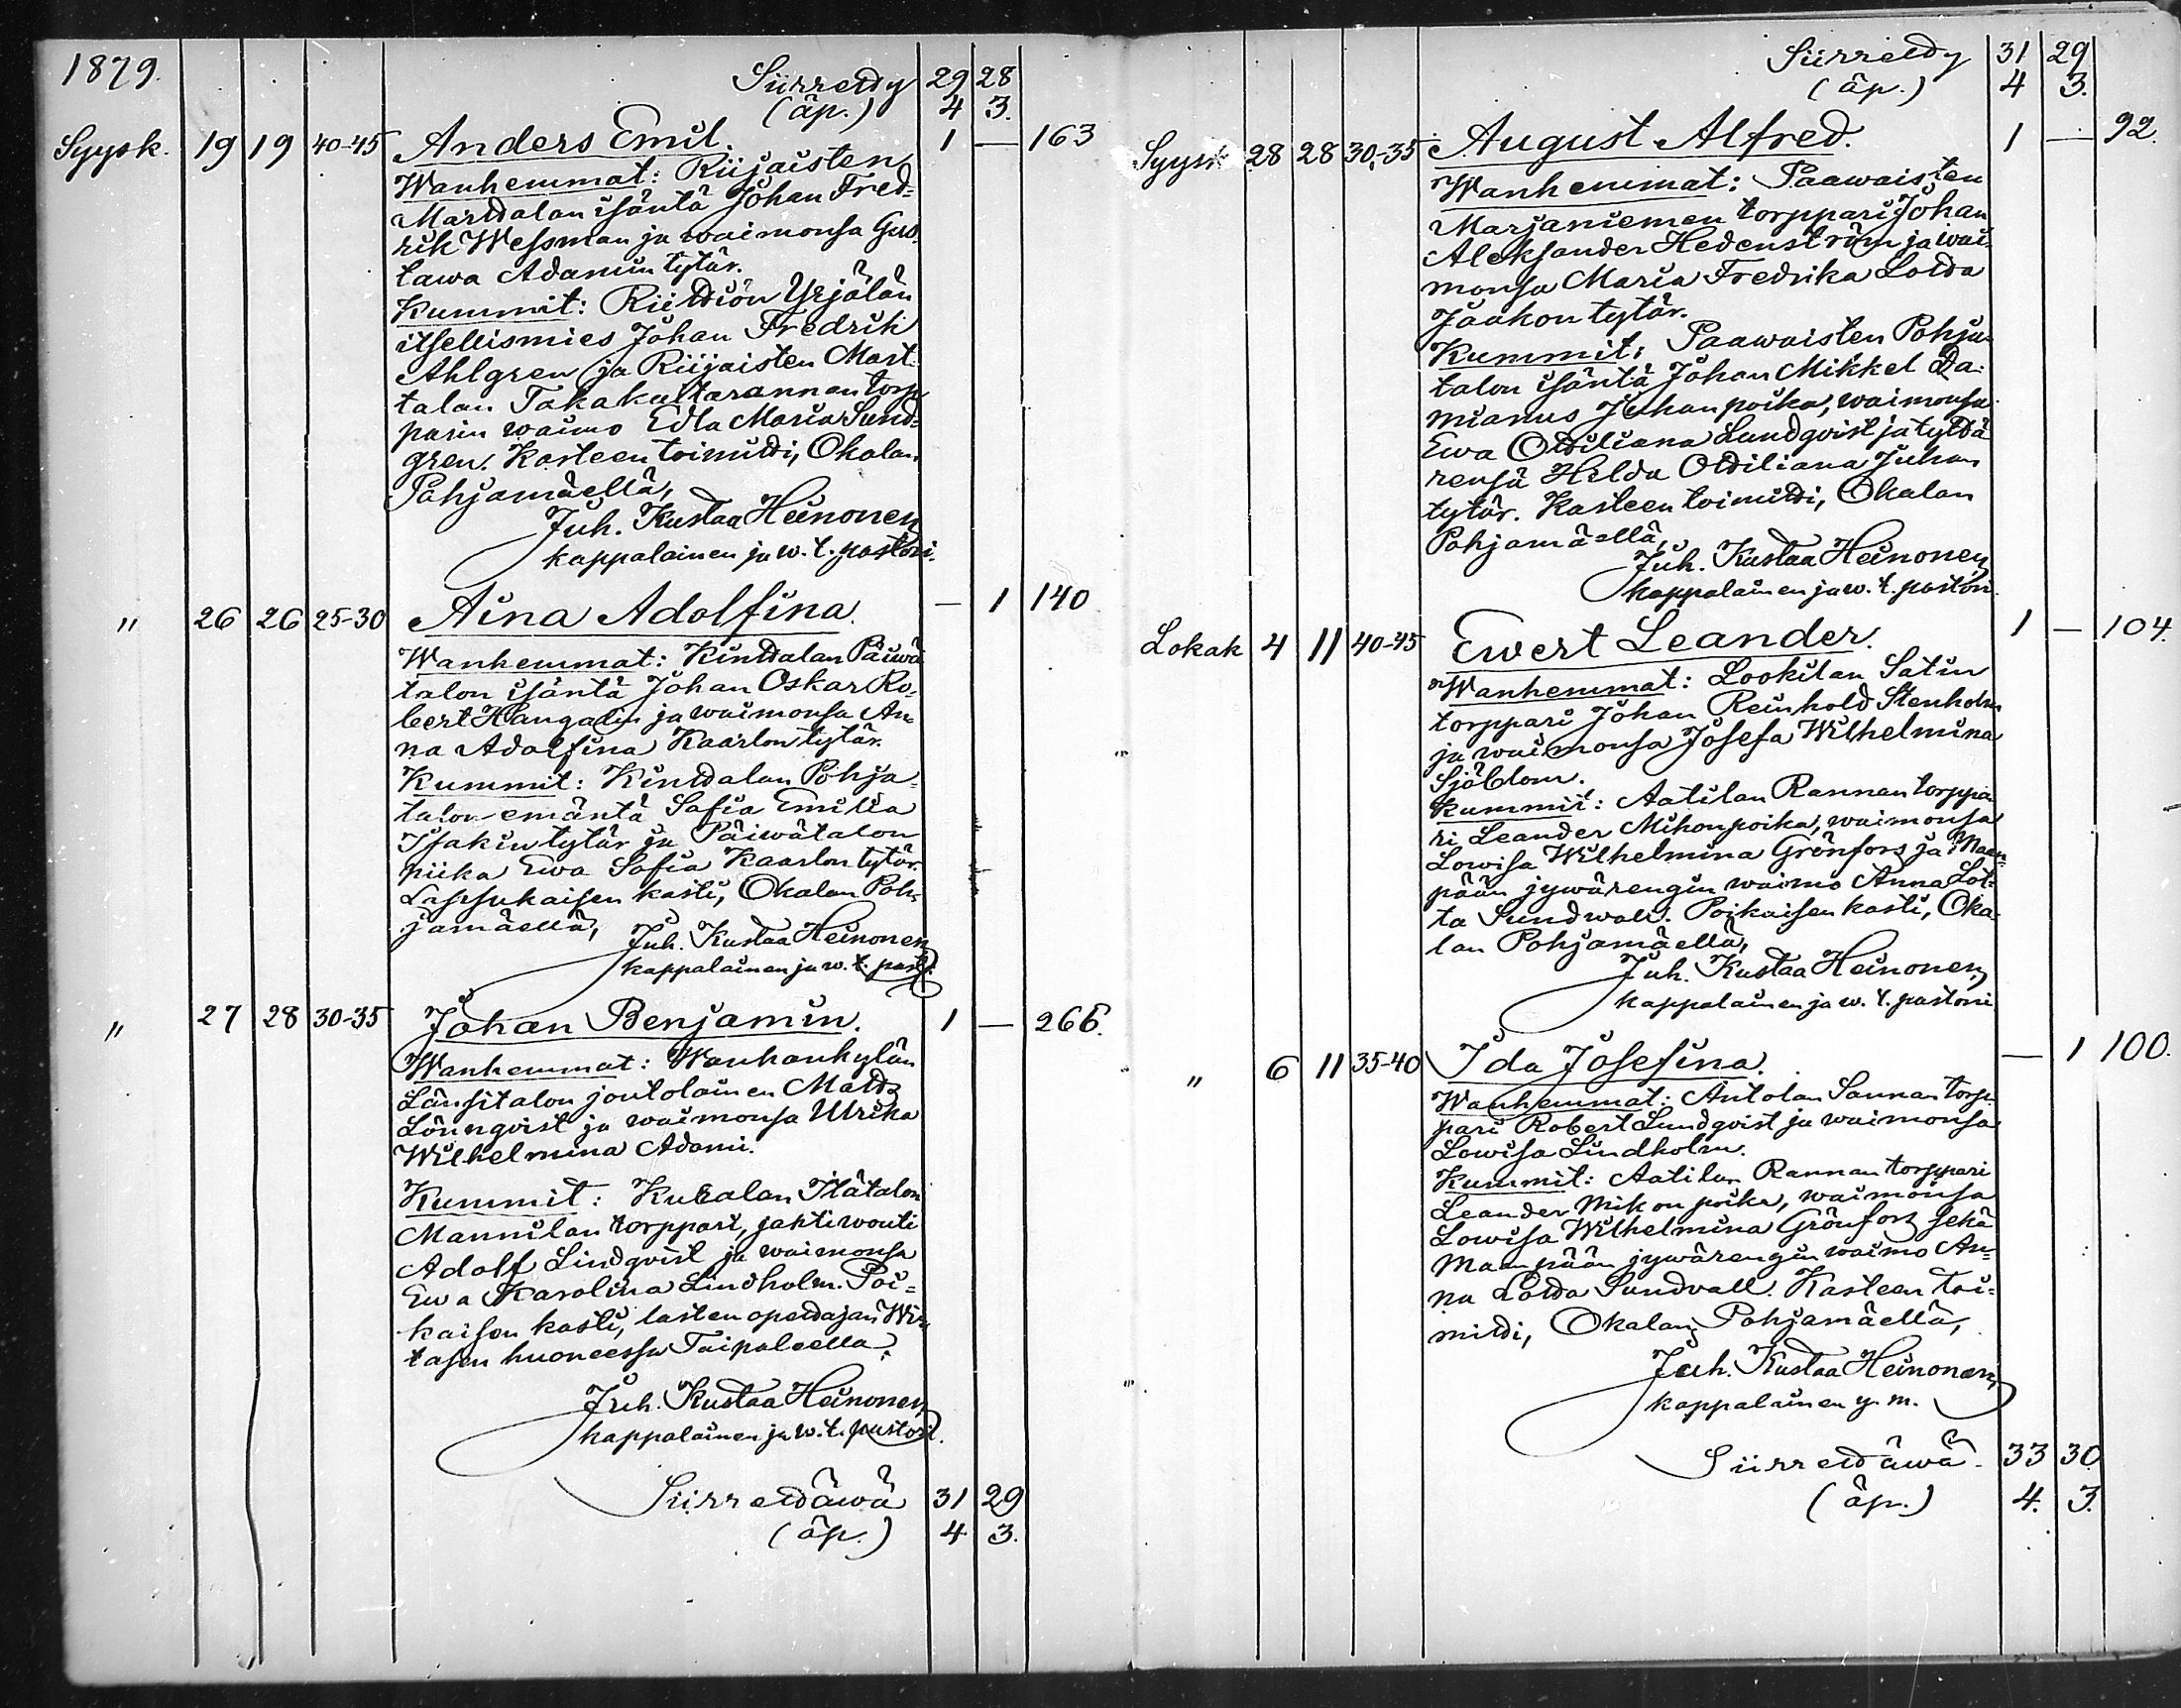 1879.
Siirretty 29 28
(äp.) 4 3.
Syysk. 19 19 40-45 Anders Emil. 1 — 163
Wanhemmat: Riijaisten
Marttalan isäntä Johan Fred=
rik Wessman ja waimonsa Gus=
tawa Adamin tytär.
Kummit: Riittiön Yrjölän
itsellismies Johan Fredrik
Ahlgren ja Riijaisten Mart=
talan Takakultarannan torp=
parin waimo Edla Maria Sund=
gren. Kasteen toimitti, Okalan
Pohjamäellä,
Juh. Kustaa Heinonen
kappalainen ja w. t. pastori.
" 26 26 25-30 Aina Adolfina. — 1 140
Wanhemmat: Kinttalan Päiwä
talon isäntä Johan Oskar Ro=
bert Hangelin ja waimonsa An=
na Adolfina Kaarlon tytär.
Kummit: Kinttalan Pohja=
talon emäntä Sofia Emilia
Isakin tytär ja Päiwätalon
piika Ewa Sofia Kaarlon tytär.
Lapsukaisen kasti, Okalan Poh=
jamäellä,
Juh. Kustaa Heinonen
kappalainen ja w. t. past.
" 27 28 30-35 Johan Benjamin. 1 — 266.
Wanhemmat: Wanhankylän
Länsitalon joutolainen Matts
Lönnqvist ja waimonsa Ulrika
Wilhelmina Adami.
Kummit: Kukalan Itätalon
Mannilan torppari, jahtiwouti
Adolf Lindqvist ja waimonsa
Ewa Karolina Lindholm. Poi=
kaisen kasti, lasten opettajan Wir=
tasen huoneessa Taipaleella,
Juh. Kustaa Heinonen
kappalainen ja w. t. pastori.
Siirrettäwä 31 29
(äp.) 4 3.
Siirretty 31 29
(äp.) 4 3.
Syysk 28 28 30,-35 August Alfred. 1 — 92.
Wanhemmat: Paawaisten
Marjaniemen torppari Johan
Aleksander Hedenström ja wai=
monsa Maria Fredrika Lotta
Jaakon tytär.
Kummit: Paawaisten Pohja=
talon isäntä Johan Mikkel Da=
mianus Juhan poika, waimonsa
Ewa Ottiliana Lundqvist ja tyttä
rensä Hilda Ottiliana Juhan
tytär. Kasteen toimitti, Okalan
Pohjamäellä,
Juh. Kustaa Heinonen,
kappalainen ja w. t. pastori.
Lokak 4 11 40-45 Ewert Leander. 1 — 104.
Wanhemmat: Lookilan Satin
torppari Johan Reinhold Stenholm
ja waimonsa Josefa Wilhelmina
Sjöblom.
Kummit: Aatilan Rannan torppa
ri Leander Mikon poika, waimonsa
Lowisa Wilhelmina Grönfors ja Maan=
pään jywärengin waimo Anna Lot=
ta Sundwall. Poikaisen kasti, Oka=
lan Pohjamäellä,
Juh. Kustaa Heinonen,
kappalainen ja w. t. pastori
" 6 11 35-40 Ida Josefina. — 1 100.
Wanhemmat: Antolan Sannan torp=
pari Robert Lundqvist ja waimonsa
Lowisa Lindholm.
Kummit: Aatilan Rannan torppari
Leander Mikon poika, waimonsa
Lowisa Wilhelmina Grönfors sekä
Maanpään jywärengin waimo An=
na Lotta Sundvall. Kasteen toi=
mitti, Okalan Pohjamäellä,
Juh. Kustaa Heinonen,
kappalainen y. m.
Siirrettäwä 33 30
(äp.) 4. 3.